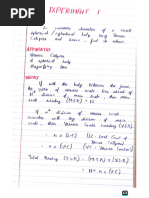 EXPERIMENT 1
To measure diameter of a small
spherical / cylindrical body using Vernier
Callipers and hence find its volume.
APPARATUS
Vernier Callipers
A spherical body
Magnifying lens
THEORY
If with the body between the jaws,
the zero of vernier scale lies ahead of
Nth division of main scale, then main
scale reading (M.S.R) = N.
If nth division of vernier scale
coincides with any division of main
scale, then Vernier Scale reading (V.S.R)
= n × (L.C)
= n × (V.C)
Total Reading (T.R) = (M.S.R) + (V.S.R)
= N + n × (V.C)